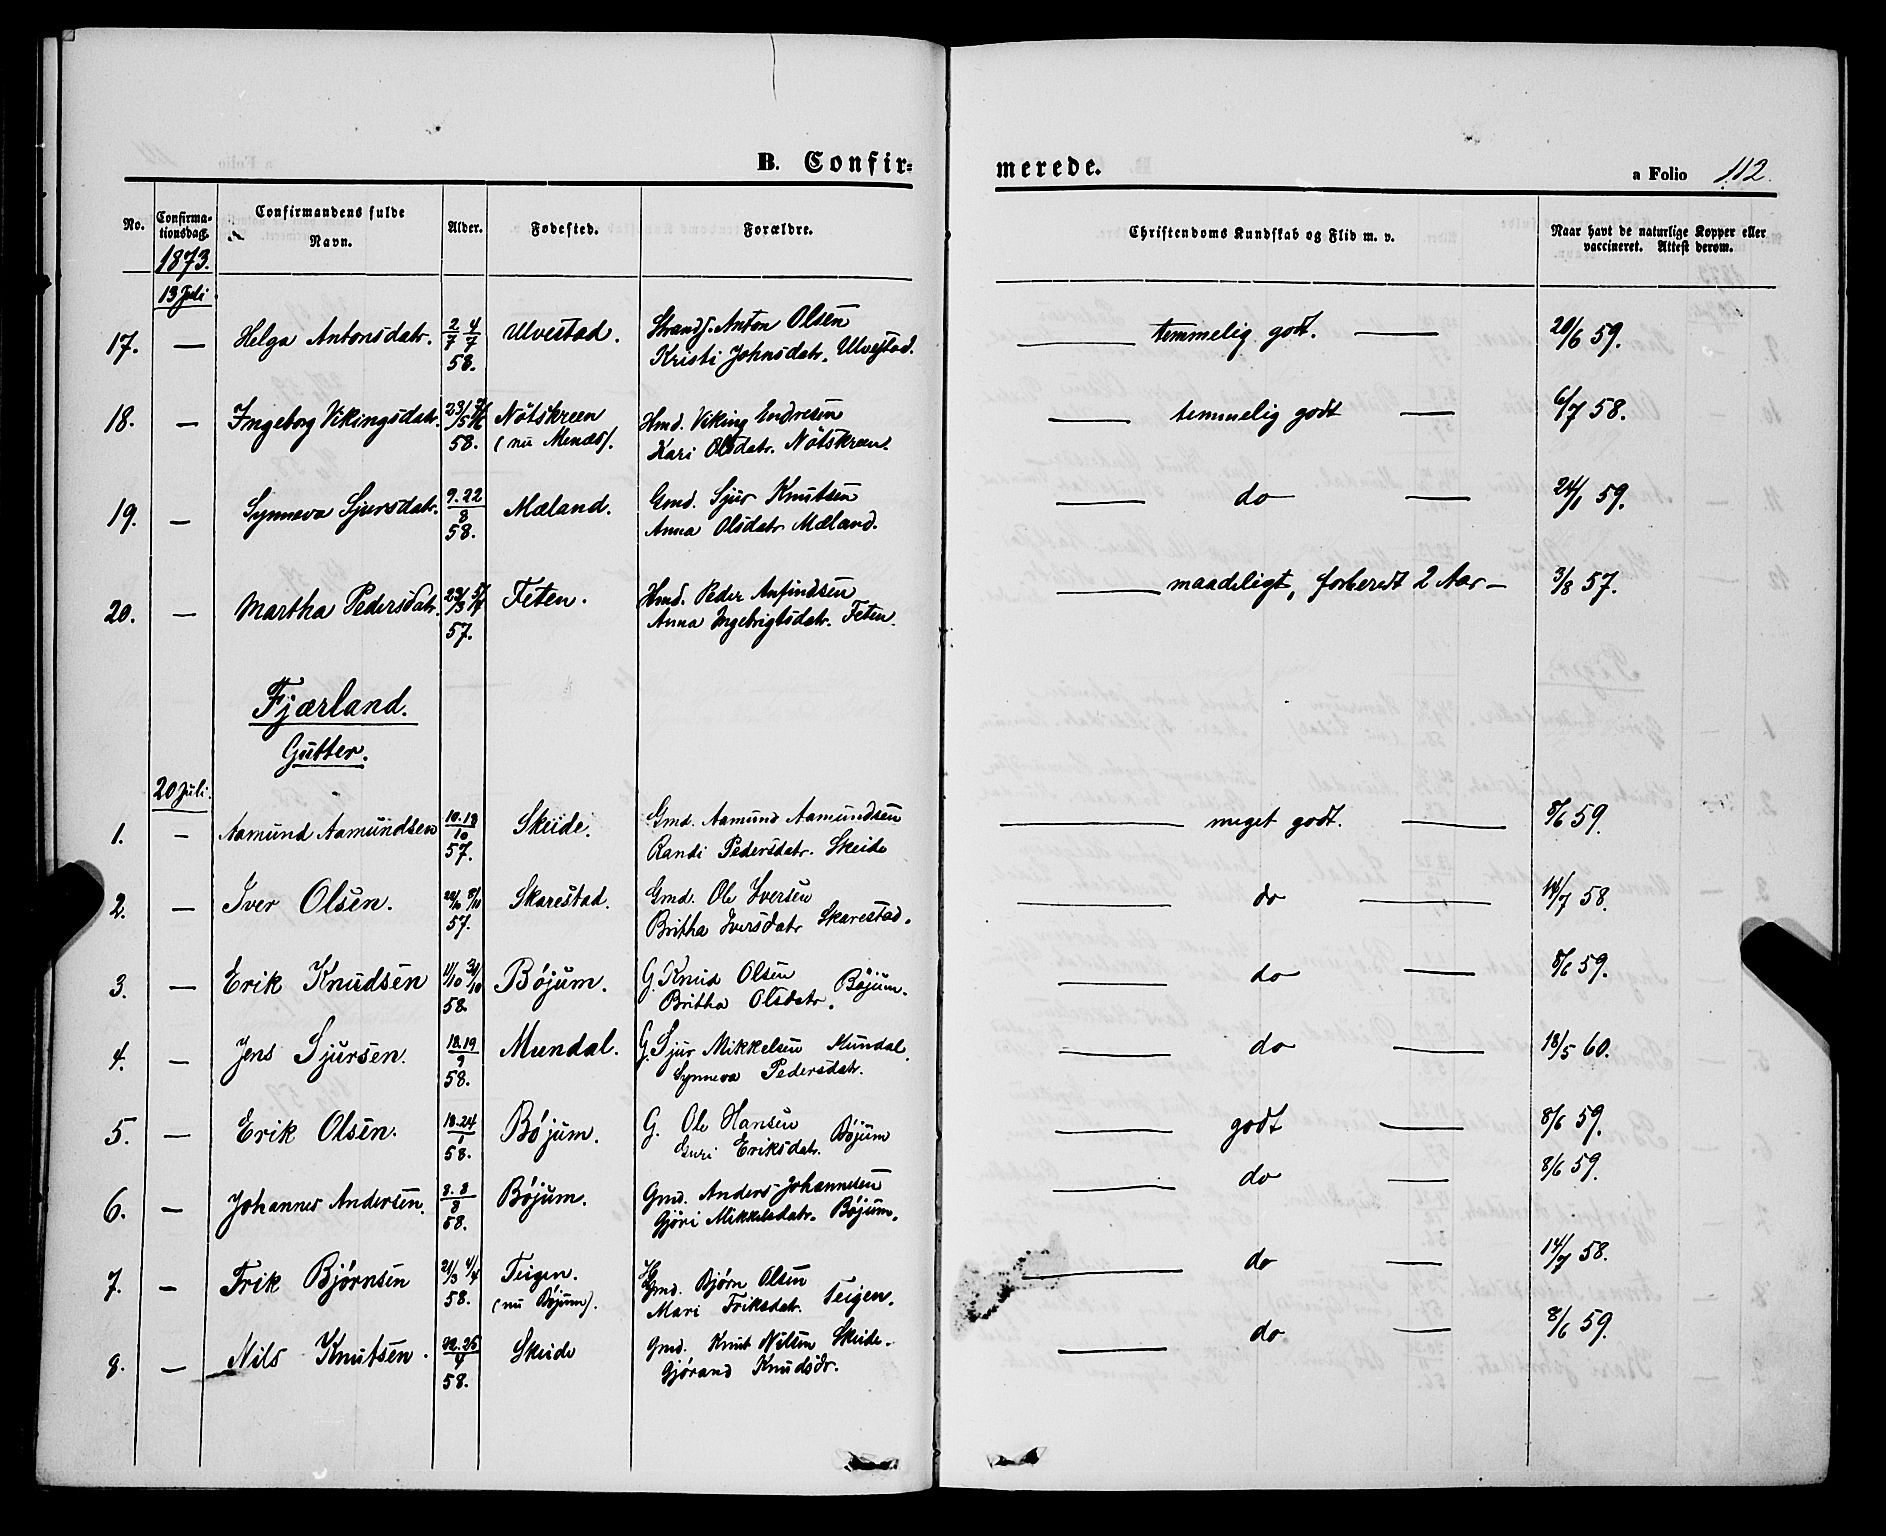 B. Confirmerede. a Folio 112.
No. Confirmationsdag. Confirmandens fulde Navn. Alder. Fødested. Forældre. Christendoms Kundskab og Flid m. v. Naar havt de naturlige Kopper eller vaccineret. Attest derom.
1873.
13 Juli
17. — Helga Antonsdatr. 2/7 4/7 58. Ulvestad. Strands. Anton Olsen — temmelig godt. — 20/6 59.
Kristi Johnsdatr. Ulvestad.
18. — Ingeborg Vikingsdatr. 23/5 58. Nötskreen Hmd. Viking Endresen — temmelig godt — 6/7 58.
(nu Menæs). Kari Olsdatr. Nötskreen.
19. — Synneva Sjursdatr. 9.22/8 58. Mæland. Gmd. Sjur Knutsen — do — 24/1 59.
Anna Olsdatr Mæland.
20. — Martha Pedersdatr. 57. Feten. Hmd. Peder Anfindsen — maadeligt, forberedt 2 Aar — 3/8 57.
Anna Ingebrigtsdatr. Feten.
Fjærland.
Gutter.
20 Juli.
1. — Aamund Aamundsen 10.18/10 57. Skeide. Gmd. Aamund Aamundsen — meget godt. — 8/6 59.
Randi Pedersdatr. Skeide
2. — Iver Olsen. 57. Skarestad. Gmd. Ole Iversen — do — 14/7 58.
Britha Iversdatr Skarestad.
3. — Erik Knudsen 11/10 31/10 58. Bøjum. G. Knud Olsen — do — 8/6 59.
Britha Olsdatr. Bøjum.
4. — Jens Sjursen. 58. Mundal. G. Sjur Mikkelsen Mundal. — do — 18/5 60.
Synneva Pedersdatr.
5. — Erik Olsen. 18.24/1 58. Bøjum. G. Ole Hansen — godt — 8/6 59.
Guri Eriksdatr. Bøjum
6. — Johannes Andersen. 3.8/8 58. Bøjum. Gmd. Anders Johannesen — do — 8/6 59.
Gjöri Mikkelsdatr. Bøjum.
7. — Frik Bjørnsen 21/3 4/4 58. Teigen. Gmd. Bjørn Olsen — do — 14/7 58.
(nu Bøjum). Mari Friksdatr. Teigen.
8. — Nils Knutsen. 22.25/4 58. Skeide Gmd. Knut Nilsen Skeide. — do — 8/6 59.
Gjørand Knudsdr.